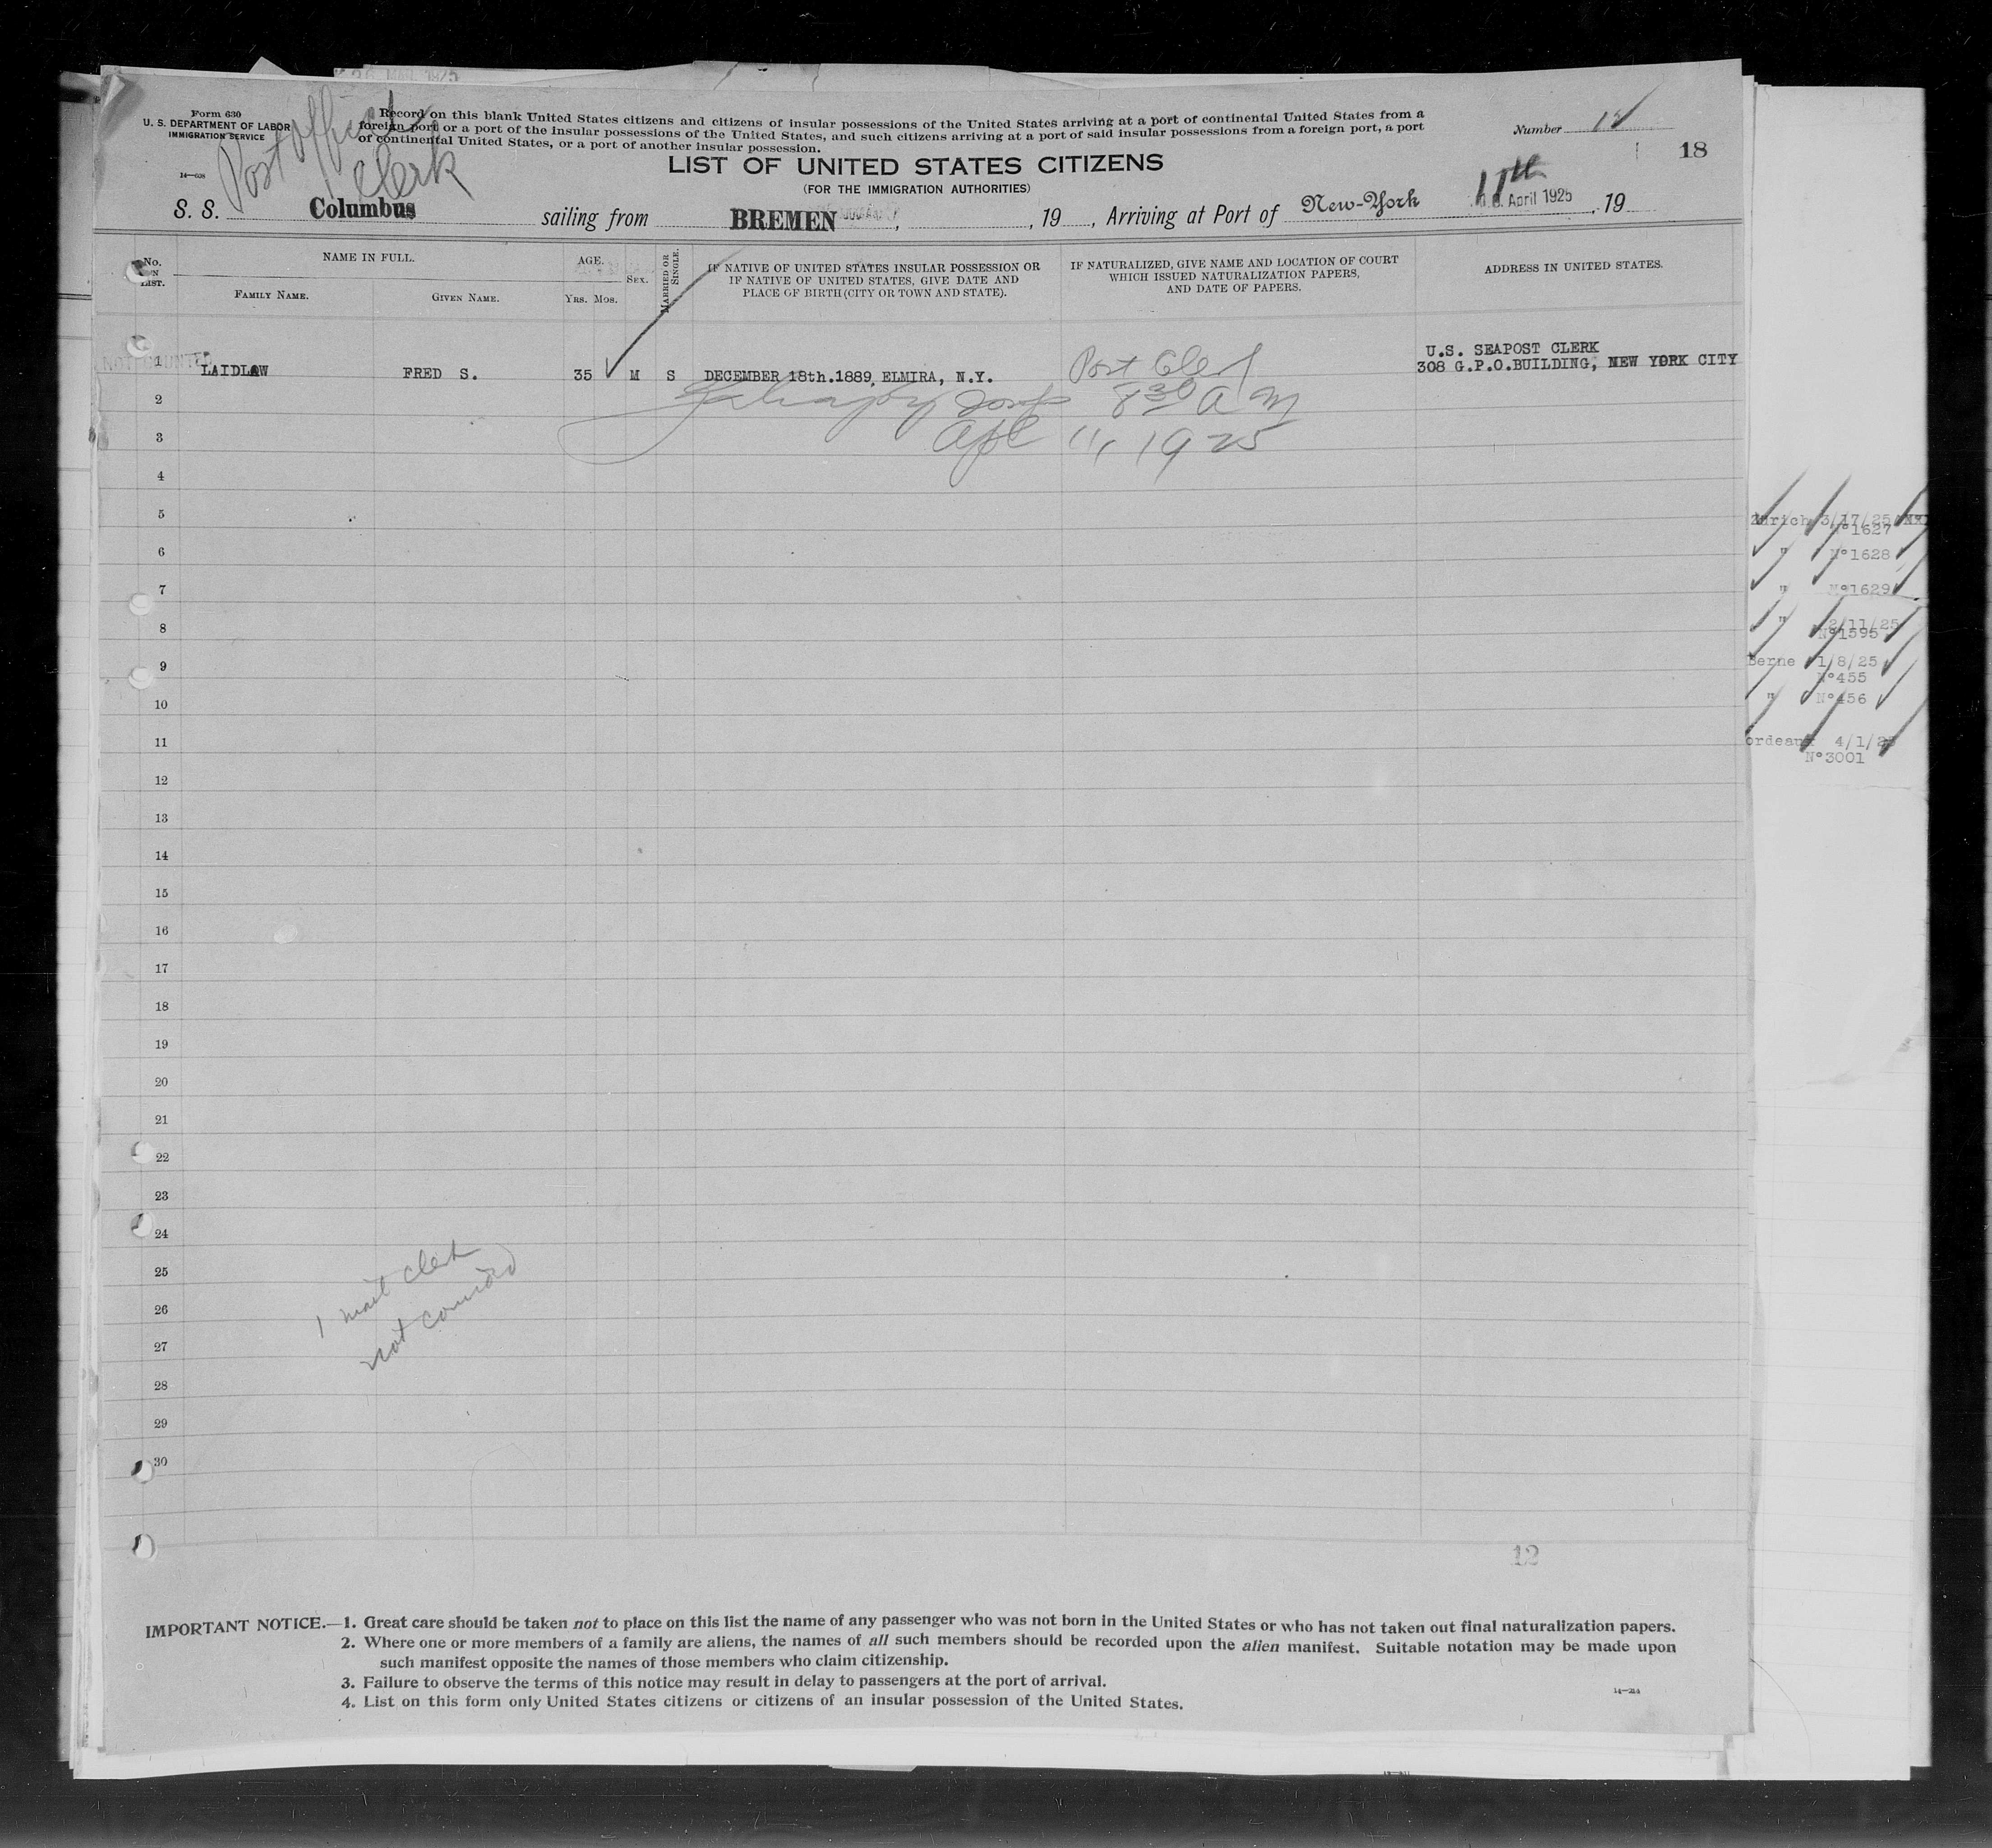 Form 630
U. S. DEPARTMENT OF LABOR
IMMIGRATION SERVICE
14—608
Post Office
Clerk
Record on this blank United States citizens and citizens of insular possessions of the United States arriving at a port of continental United States from a
foreign port or a port of the insular possessions of the United States, and such citizens arriving at a port of said insular possessions from a foreign port, a port
of continental United States, or a port of another insular possession.
Number 12
18
LIST OF UNITED STATES CITIZENS
(FOR THE IMMIGRATION AUTHORITIES)
S. S. Columbus sailing from BREMEN, , 19 , Arriving at Port of New-York 11th April 1925, 19
No. ON LIST.
NAME IN FULL.
FAMILY NAME.
GIVEN NAME.
AGE.
YRS. MOS.
SEX.
MARRIED OR SINGLE.
IF NATIVE OF UNITED STATES INSULAR POSSESSION OR
IF NATIVE OF UNITED STATES, GIVE DATE AND
PLACE OF BIRTH (CITY OR TOWN AND STATE).
IF NATURALIZED, GIVE NAME AND LOCATION OF COURT
WHICH ISSUED NATURALIZATION PAPERS,
AND DATE OF PAPERS.
ADDRESS IN UNITED STATES.
NOT COUNTED
U.S. SEAPOST CLERK
1 LAIDLAW FRED S. 35 M S DECEMBER 18th.1889, ELMIRA, N.Y. Post Clerk 308 G.P.O.BUILDING, NEW YORK CITY
2 8 30 A M
3 Apl 11, 1925
4
5
6
7
8
9
10
11
12
13
14
15
16
17
18
19
20
21
22
23
24
25
26
27
28
29
30
1 mail clerk
not counted
Zurich 3/17/25
N°1627
" N°1628
" N°1629
" 2/11/25
N°1595
Berne 1/8/25
N°455
" N°456
ordeaux 4/1/25
N°3001
12
IMPORTANT NOTICE.—1. Great care should be taken not to place on this list the name of any passenger who was not born in the United States or who has not taken out final naturalization papers.
2. Where one or more members of a family are aliens, the names of all such members should be recorded upon the alien manifest. Suitable notation may be made upon
such manifest opposite the names of those members who claim citizenship.
3. Failure to observe the terms of this notice may result in delay to passengers at the port of arrival.
4. List on this form only United States citizens or citizens of an insular possession of the United States.
14—214